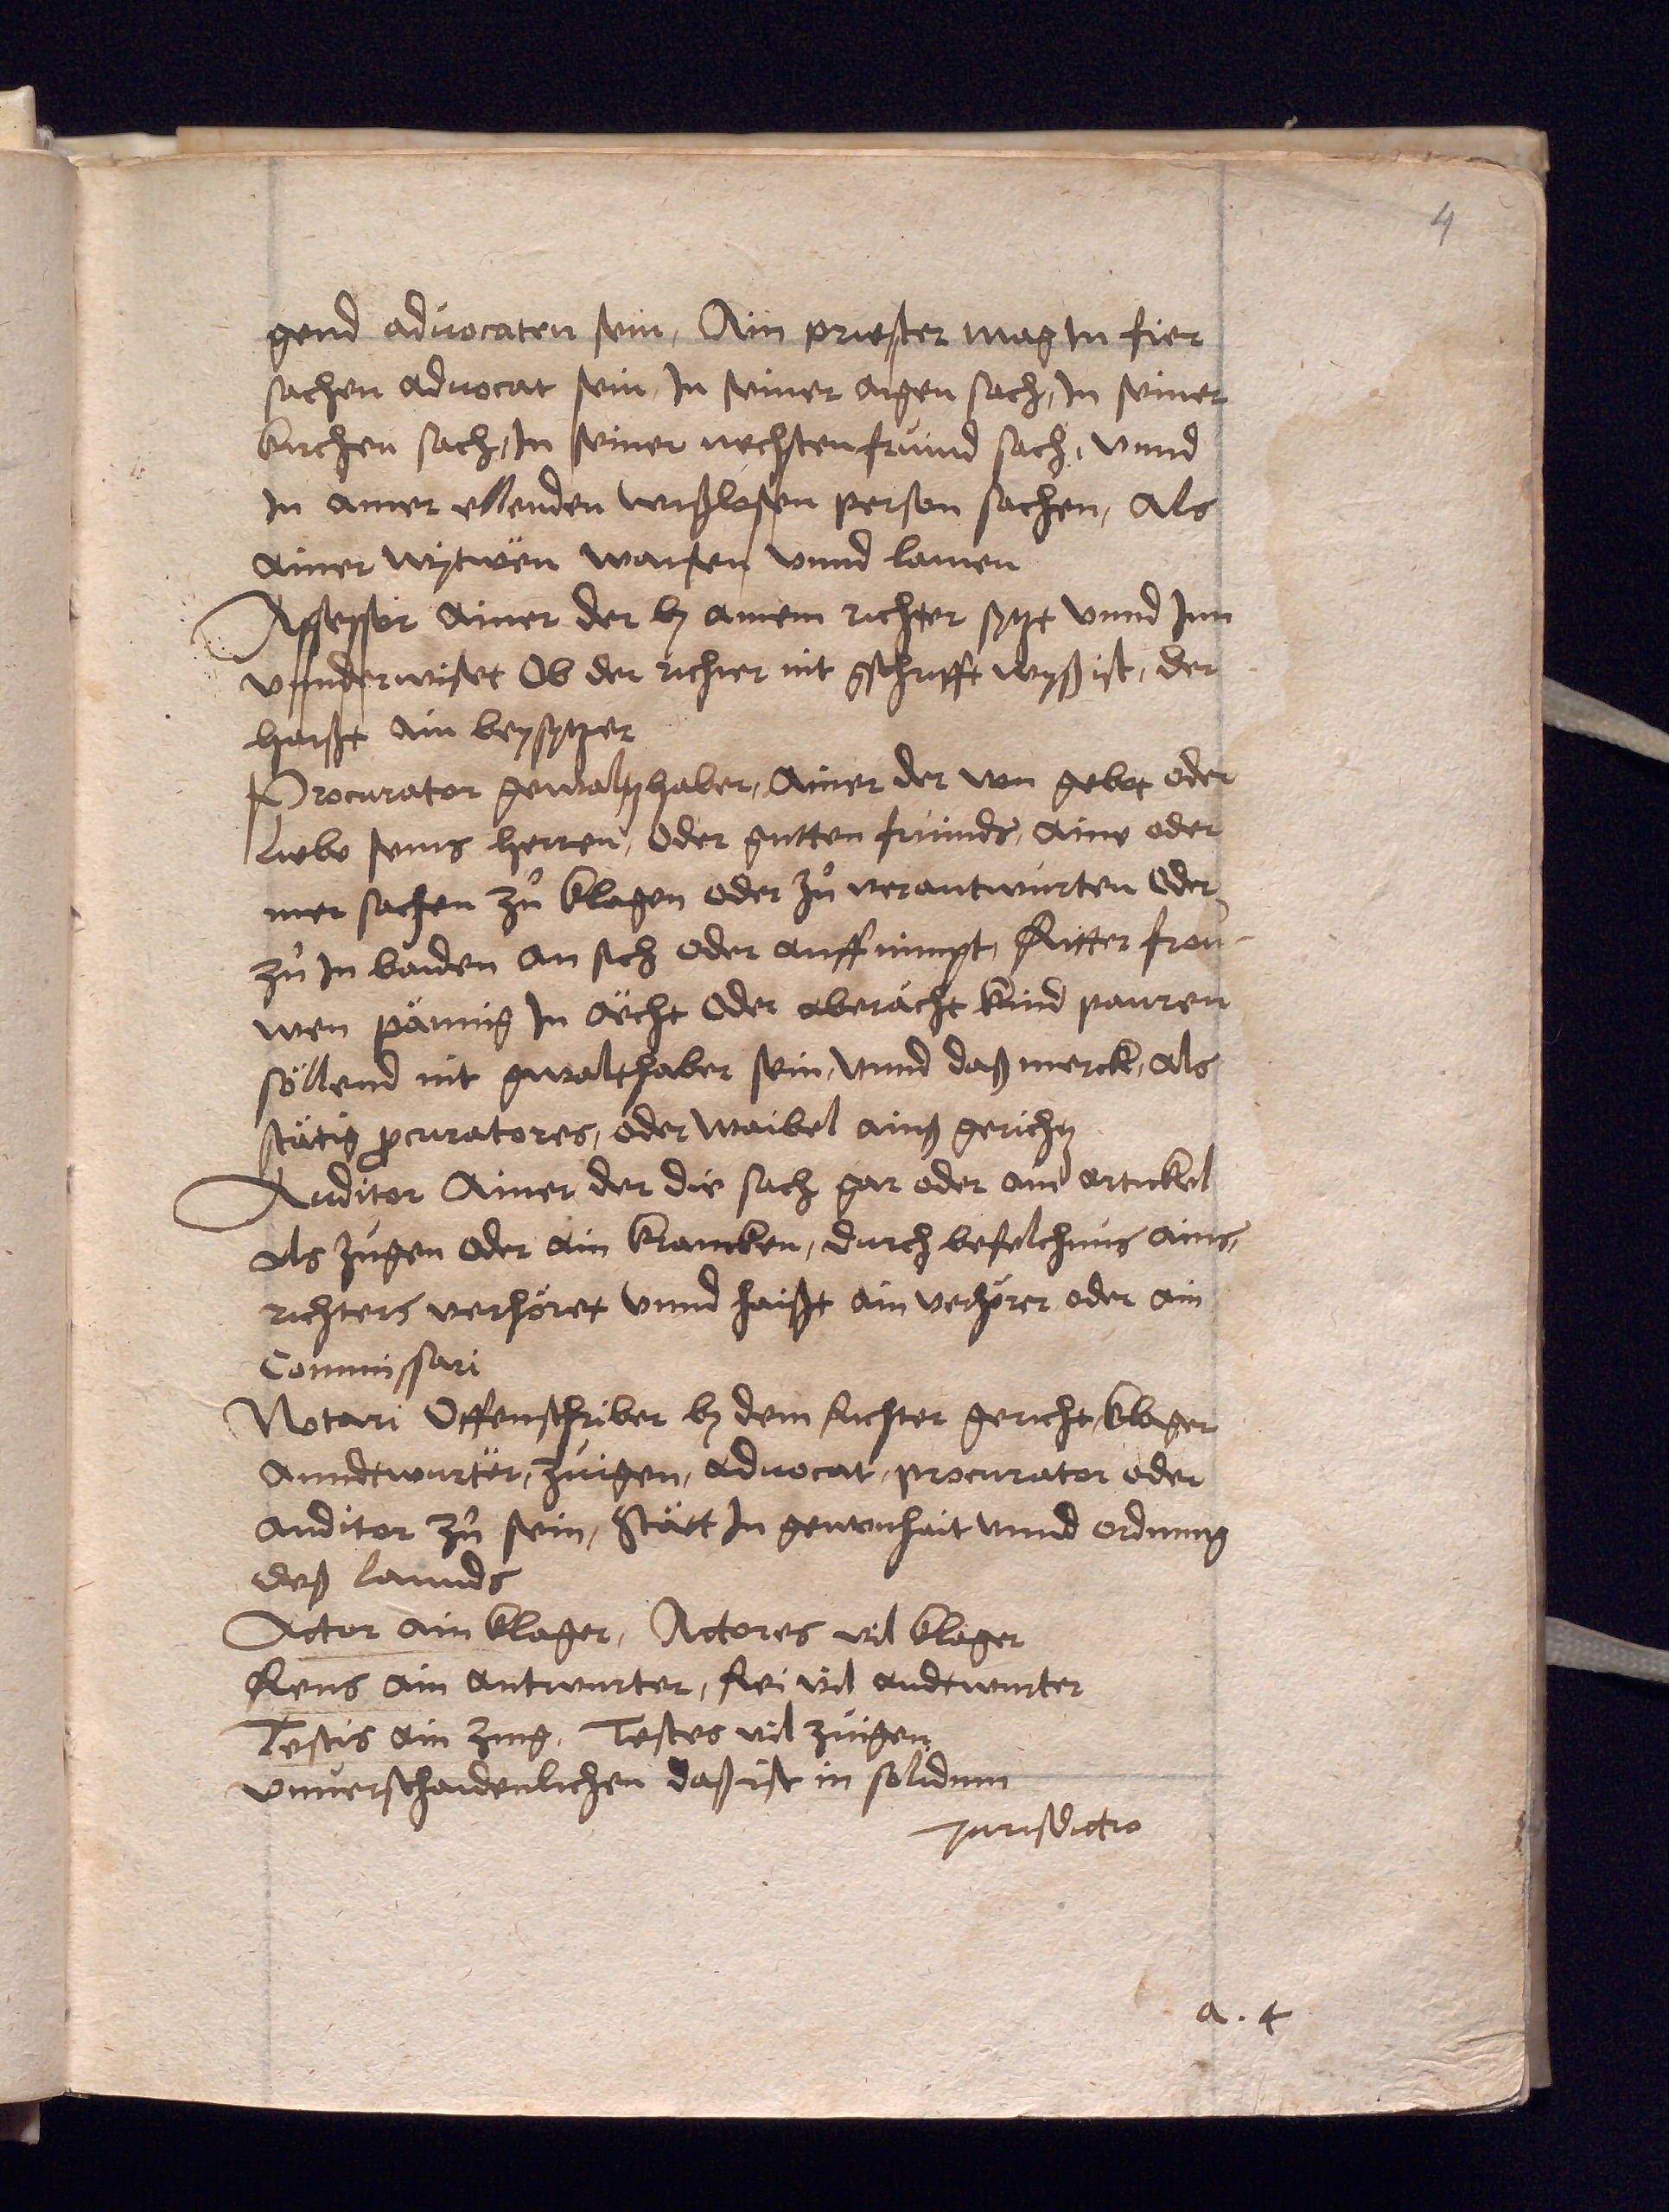 4
gend aduocaten sein, Ain priester mag in fier
sachen aduocat sein, In seiner aigen sach, In seiner
kirchen sach, In seiner nechsten fruind sach, vnnd
In ainer ellenden wißlosen person sachen, Als
ainer wytwen waisen vnnd lamen
Assessor ainer der by ainem richter sytzt vnnd Inn
vnnderwiset Ob der richter nit gschrifft wyß ist, der
haißt ain beysytzer
Procurator gewaltzhaber, Ainer der von gebot oder
Liebe seins herren, oder gutten fruinds, aine oder
mer sachen zů klagen oder zů verantwurten Oder
zů In baiden an sich oder auffnimpt, Ritter frou-
wen pännig In ächt Oder aberächt kind pauren
söllend nit gwalthaber sein, vnnd daß merck, als
stätig procuratores, oder waibel ainß gerichtz
Auditor Ainer der die sach gar oder ain artickel
als zugen oder ain krancken, durch befelchnus ains
richters verhöret vnnd haißt ain verhörer oder ain
Commissari
Notari Offenschriber by dem Richter gericht, klager
anndtwurter, zuigen, aduocat, procurator oder
auditor zů sein, Statt In gewonhait vnnd ordnung
deß lannds
Actor ain klager, Actores vil klager
Reus ain antwurter, Rei vil andtwurter
Testis ain zug, Testes vil zuigen
vnuerschaidenlichen daß ist in solidum
Jurisdictio
a. 4